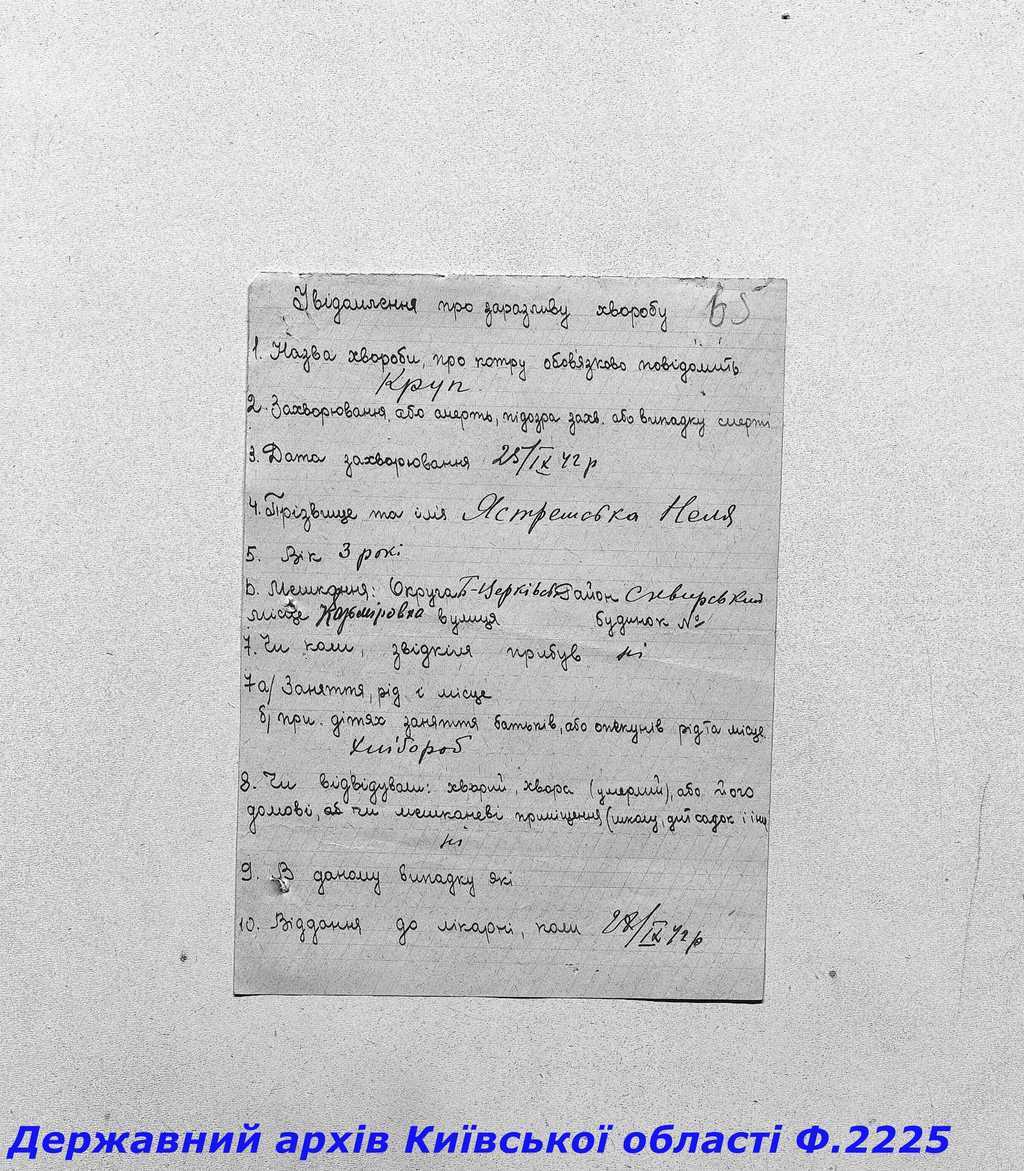 Увідомлення про заразливу хворобу 65
1. Назва хвороби, про котру обов'язково повідомить
Круп
2. Захворювання, або смерть, підозра захв. або випадку смерті
3. Дата захворювання 25/IX 42 р
4. Прізвище та імя Ястремська Неля
5. Вік 3 рокі
6. Мешкання: Округа Б-Церківськ Район Сквирський
місце Казьміровка вулиця будинок №
7. Чи коли, звідкіля прибув ні
7 а/ Заняття, рід і місце
б/ при дітях заняття батьків, або опекунів рід та місце
Хлібороб
8. Чи відвідували: хворий, хвора (умерлий), або його
домові, чи мешканеві приміщення (школу, дит садок і інш
ні
9. В даному випадку які
10. Віддання до лікарні, коли 28/IX 42 р
Державний архів Київської області Ф.2225